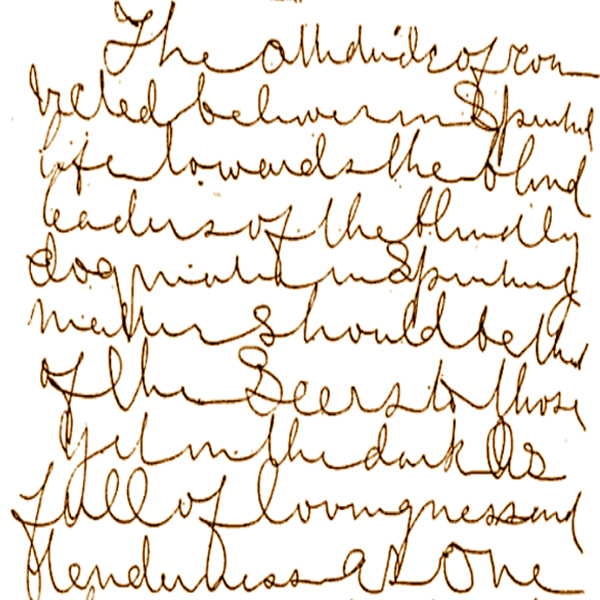 The attitude of con
victed believer in Spiritual
life towards the blind
leaders of the blindly
dogmatic in Spiritual
matters should be that
of the Seers to those
yet in the dark as
full of lovingness and
tenderness as One